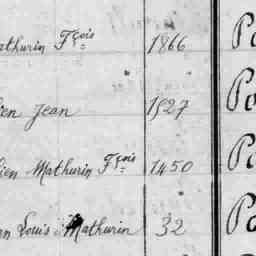 athurin Fçois 1866 Po
ien Jean 1827 Po
lien Mathurin Fçois 1450 Po
n Louis Mathurin 32 Po